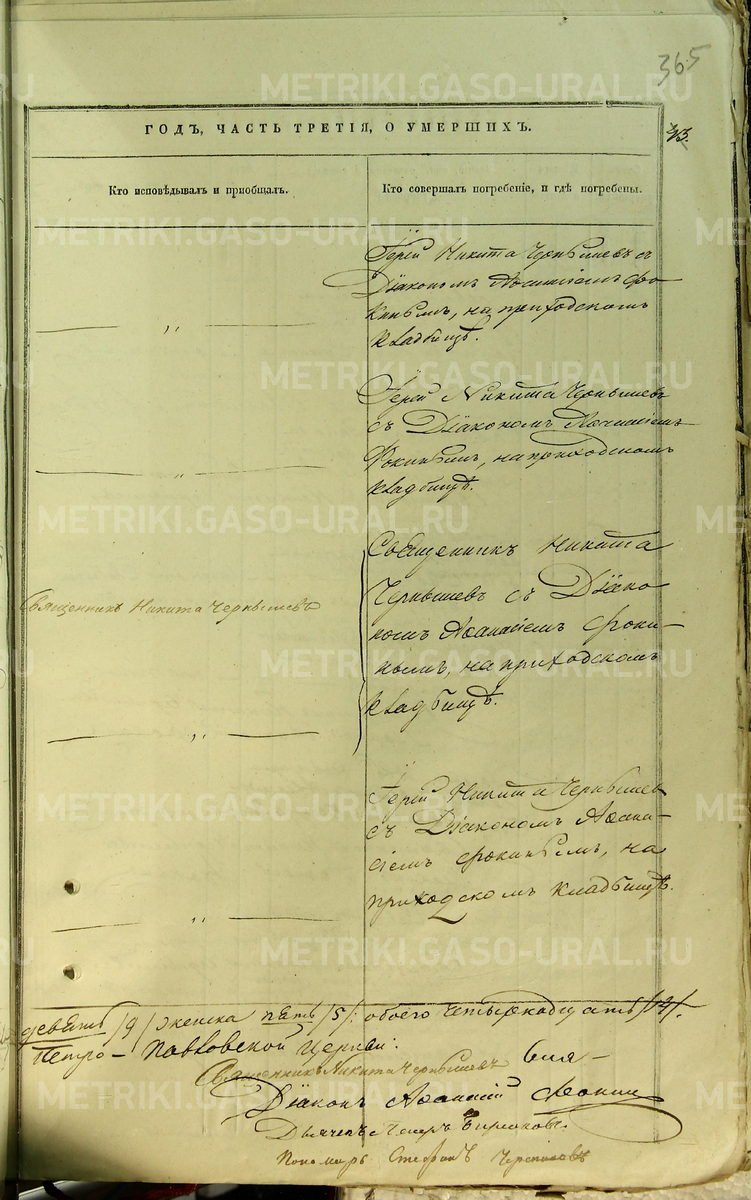 365
ГОДЪ, ЧАСТЬ ТРЕТІЯ, О УМЕРШИХЪ.
Кто исповѣдывалъ и пріобщалъ.
Кто совершалъ погребеніе, и гдѣ погребены.
Іерей Никита Чернышевъ съ
Діакономъ Аѳанасіемъ Фо-
кинымъ, на приходскомъ
кладбищѣ.
Іерей Никита Чернышевъ
съ Діакономъ Аѳанасіемъ
Фокинымъ, на приходскомъ
кладбищѣ.
Священникъ Никита Чернышевъ
Священникъ Никита
Чернышевъ съ Діако-
номъ Аѳанасіемъ Фоки-
нымъ, на приходскомъ
кладбищѣ.
Іерей Никита Чернышев
съ Діакономъ Аѳана-
сіемъ Фокинымъ, на
приходскомъ кладбищѣ.
девять /9/ женска пять /5/: обоего четырнадцать /14/.
Петро-Павловской церкви:
Священникъ Никита Чернышевъ
Діаконъ Аѳанасій Фокин
Дьячекъ Петръ
Пономарь Стефанъ
METRIKI.GASO-URAL.RU